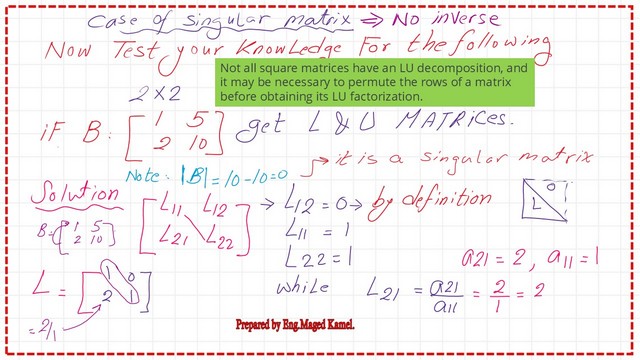 Case of singular matrix ⇒ No inverse
Now Test your Knowledge For the following
Not all square matrices have an LU decomposition, and
it may be necessary to permute the rows of a matrix
before obtaining its LU factorization.
2×2
iF B: [1 5 get L & U MATRices.
2 10]
Note: |B| = 10-10=0 → it is a singular matrix
Solution
B=[1 5
2 10]
[L11 L12
L21 L22]
→ L12 = 0 → by definition
L11 = 1
L22 = 1
0
L
a21 = 2, a11 = 1
while L21 = a21/a11 = 2/1 = 2
L = [1 0
2 1]
= 2/1
Prepared by Eng.Maged Kamel.